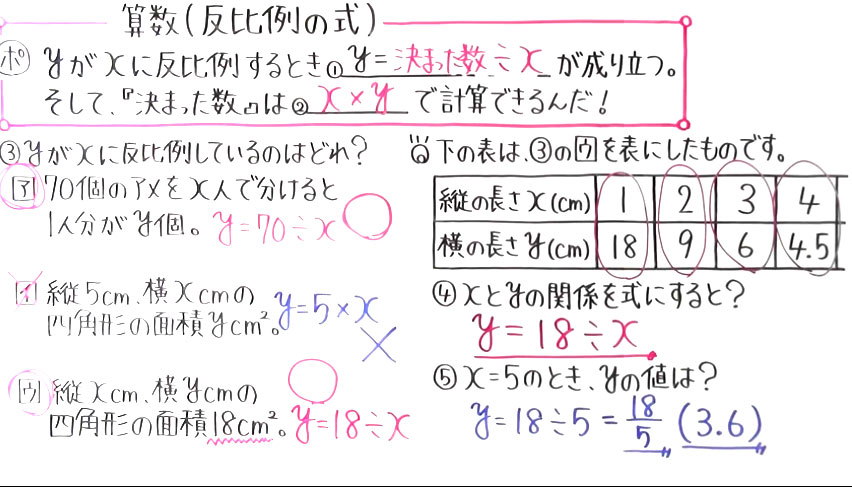 算数(反比例の式)
ポ yがxに反比例するとき① y=決まった数÷x が成り立つ。
そして、『決まった数』は② x×y で計算できるんだ!
③yがxに反比例しているのはどれ?
ア 70個のアメをx人で分けると
1人分がy個。 y=70÷x ○
イ 縦5cm、横xcmの
四角形の面積ycm²。 y=5×x ×
ウ 縦xcm、横ycmの
四角形の面積18cm²。 y=18÷x ○
下の表は、③のウを表にしたものです。
縦の長さx(cm) 1 2 3 4
横の長さy(cm) 18 9 6 4.5
④xとyの関係を式にすると?
y=18÷x
⑤x=5のとき、yの値は?
y=18÷5=18/5 (3.6)